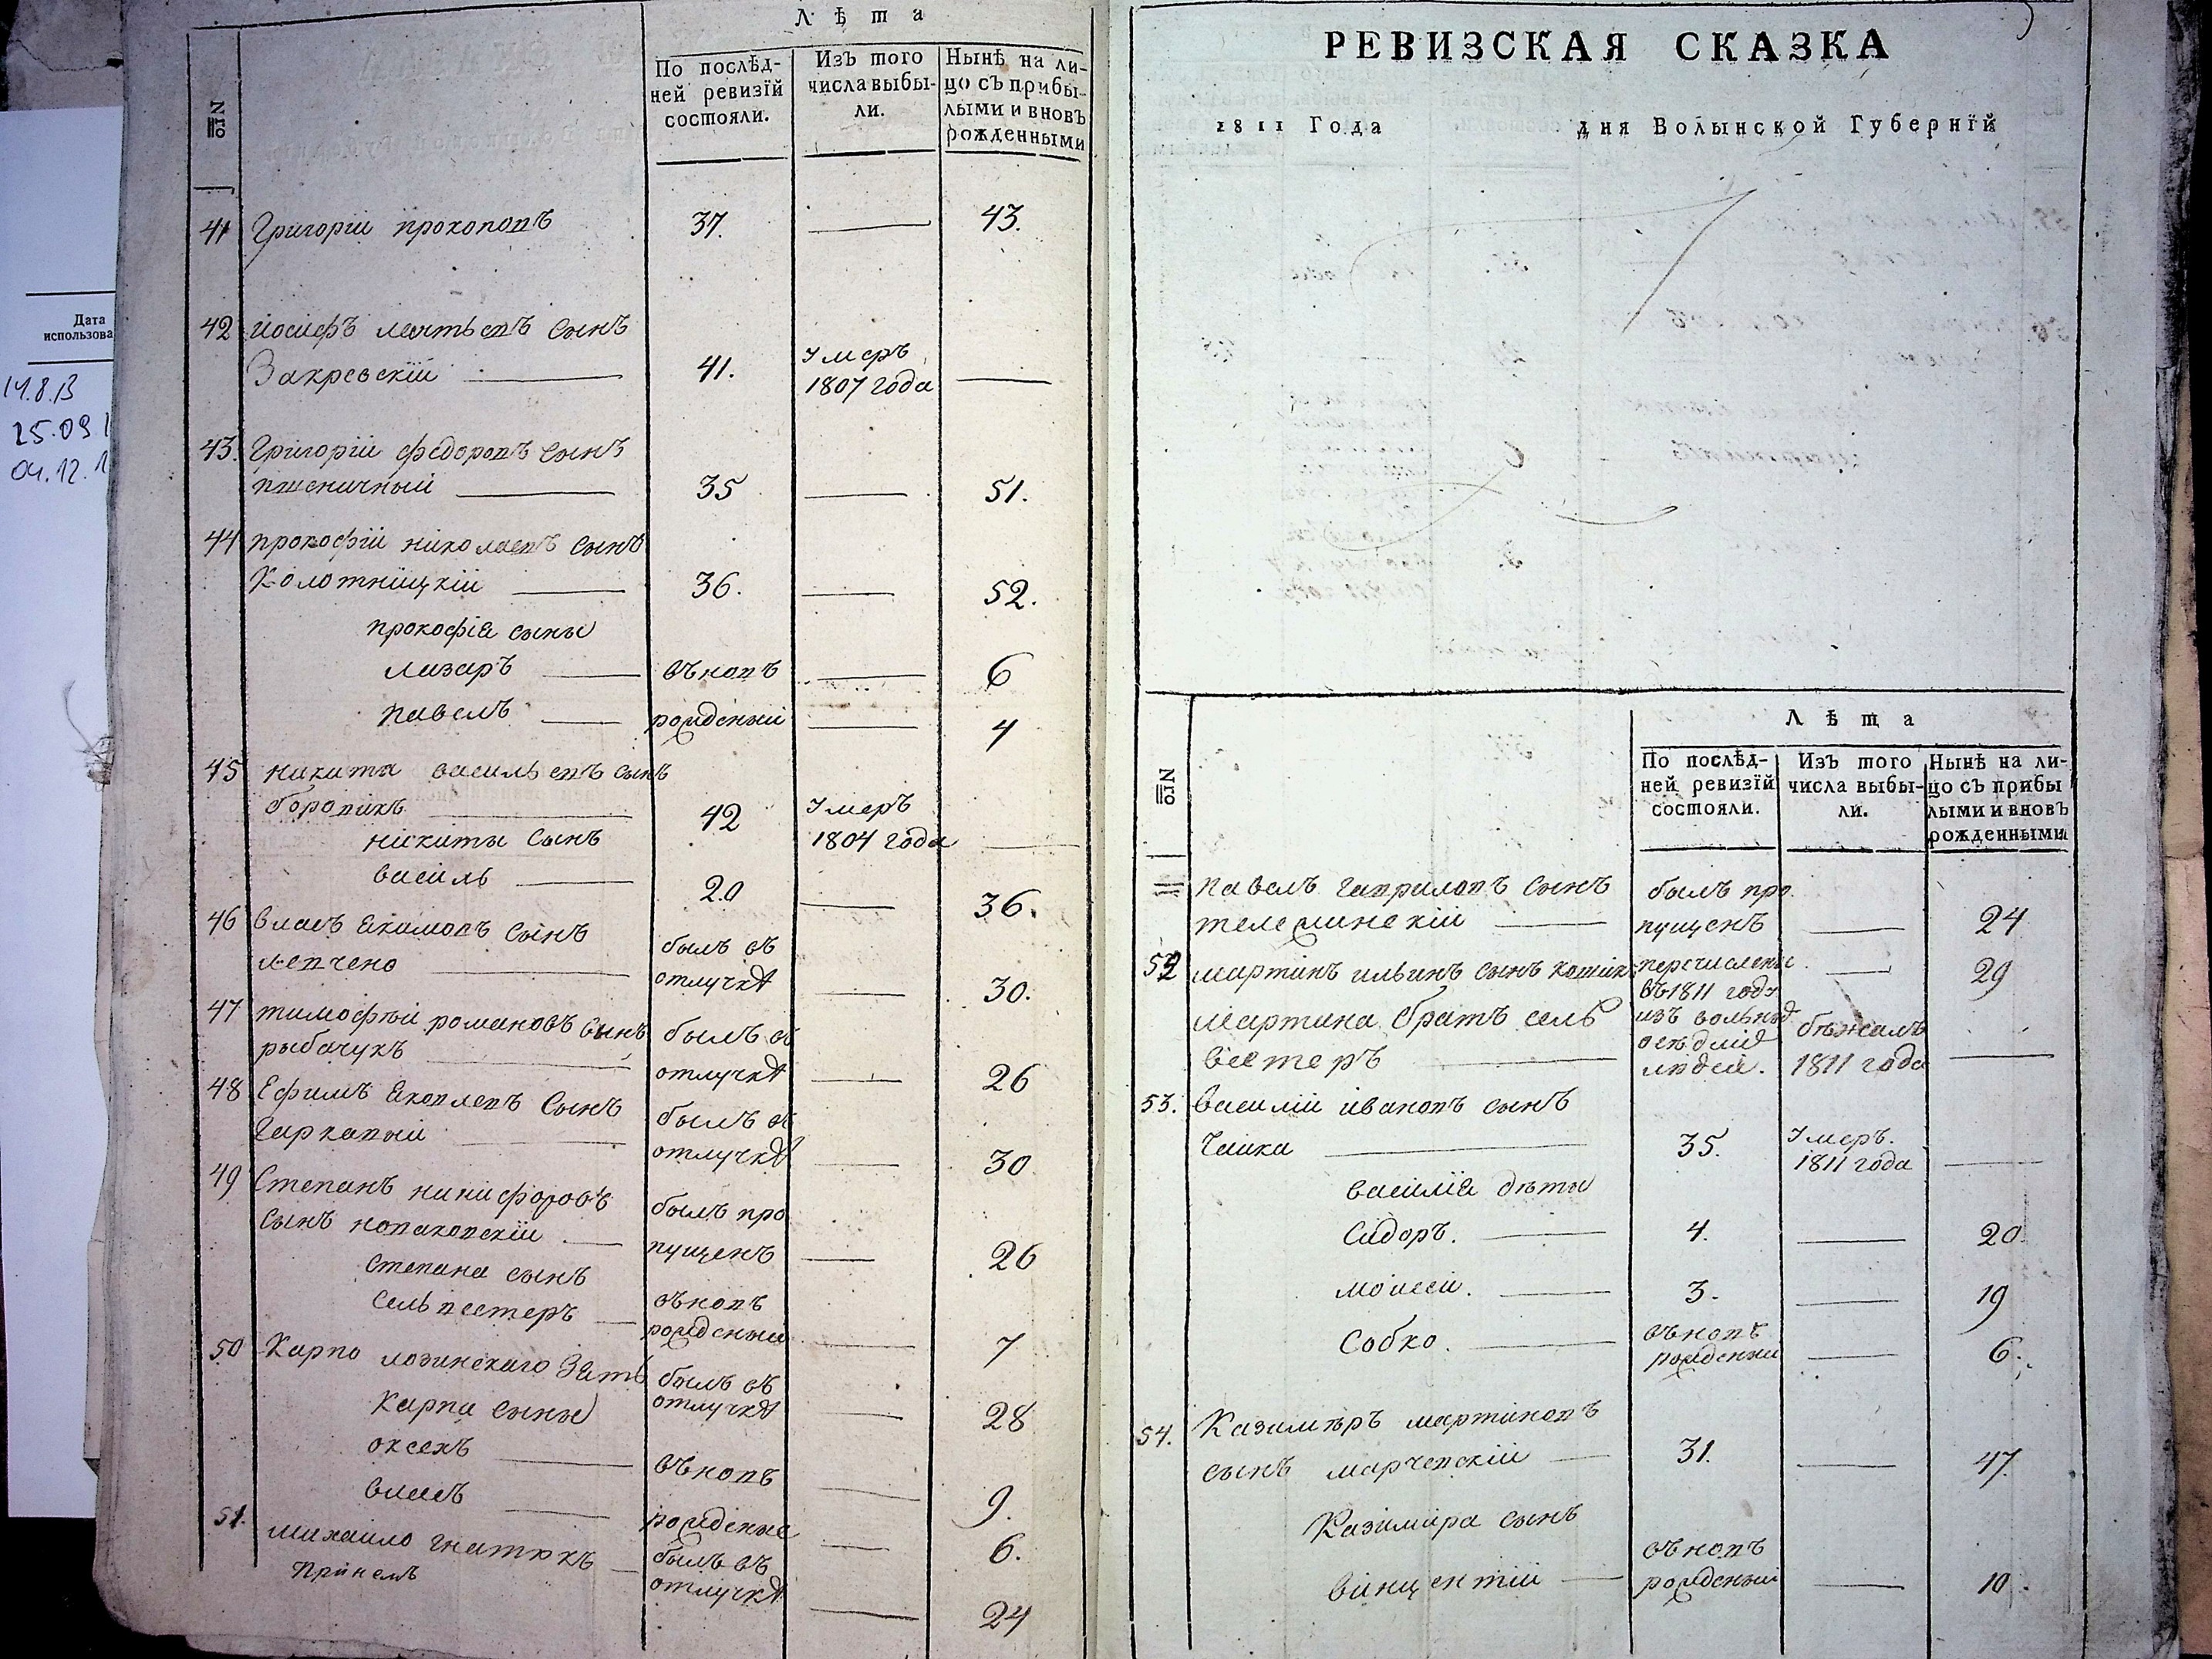 Лѣта
№го
По послѣд-
ней ревизїй
состояли.
Изъ того
числа выбы-
ли.
Нынѣ на ли-
цо съ прибы-
лыми и вновъ
рожденными
41 Григорїи прокоповъ 37. 43.
42 иосифъ матьевъ сынъ
Закревскїи 41. Умеръ 1807 года
43. Григорїи федоровъ сынъ
пшеничный 35 51.
44 прокофїи николаевъ сынъ
Колотнїцкїи 36. 52.
прокофїя сыны
лазаръ въновъ 6
павелъ рожденыи 4
45 никита васильевъ сынъ
боровикъ 42 Умеръ 1804 года
никиты сынъ
василь 20 36.
46 власъ Якимовъ сынъ
левчено былъ въ отлучкѣ 30.
47 тимофѣи романовъ сынъ
рыбачукъ былъ въ отлучкѣ 26
48 Ефимъ Яковлевъ Сынъ
Гаркавыи былъ въ отлучкѣ 30
49 Степанъ никифоровъ
сынъ новаковскїи былъ пропущенъ 26
Степана сынъ
сельвестеръ въновъ рожденыи 7
50 Карпо лозинскаго Зять былъ въ отлучкѣ 28
Карпа сыны
оксенъ въновъ 9.
власъ рожденые 6.
51. михаило гнатюкъ былъ въ отлучкѣ 24
Дата
использова
14.8.13
25.09 1
04.12.1
РЕВИЗСКАЯ СКАЗКА
1811 Года дня Волынской Губернїй
Лѣта
№го
По послѣд-
ней ревизїй
состояли.
Изъ того
числа выбы-
ли.
Нынѣ на ли-
цо съ прибы
лыми и вновъ
рожденными
павелъ гавриловъ сынъ
телеминскїи былъ пропущенъ 24
52 мартинъ ильинъ сынъ 29
перечислены
въ 1811 году
изъ вольныхъ
осѣдлїхъ
людеи.
мартина братъ сель
вестеръ бѣжалъ 1811 года
53. василїи ивановъ сынъ
Чаика 35. Умеръ. 1811 года
василїя дѣти
Сидоръ. 4. 20
моисеи. 3. 19
Собко. въновъ рожденыи 6.
54. Казимѣръ мартиновъ
сынъ марчевскїи 31. 47.
Казимира сынъ
винцентїи въновъ рожденыи 10.